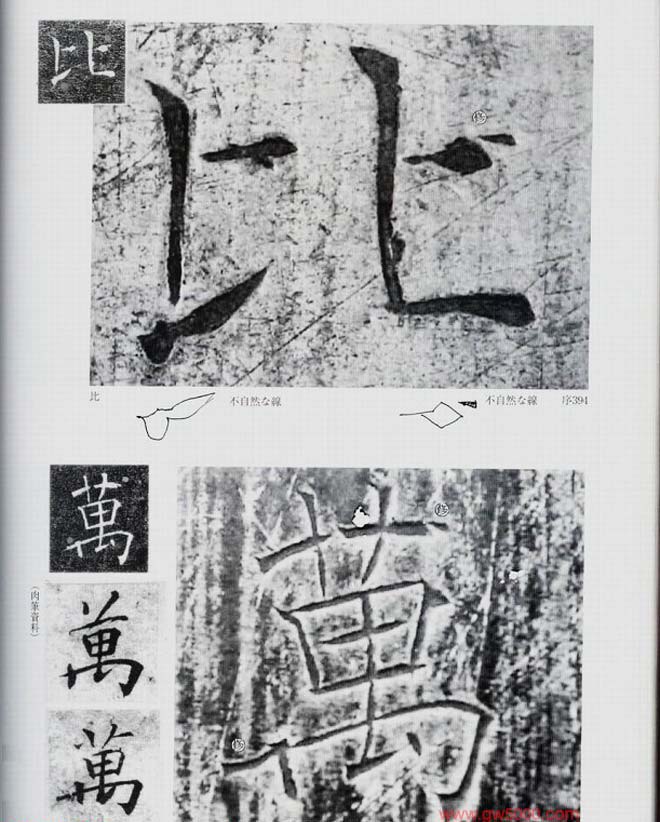 比
比
修
比
不自然な線
不自然な線
序394
萬
萬
修
(肉筆資料)
萬
萬
修